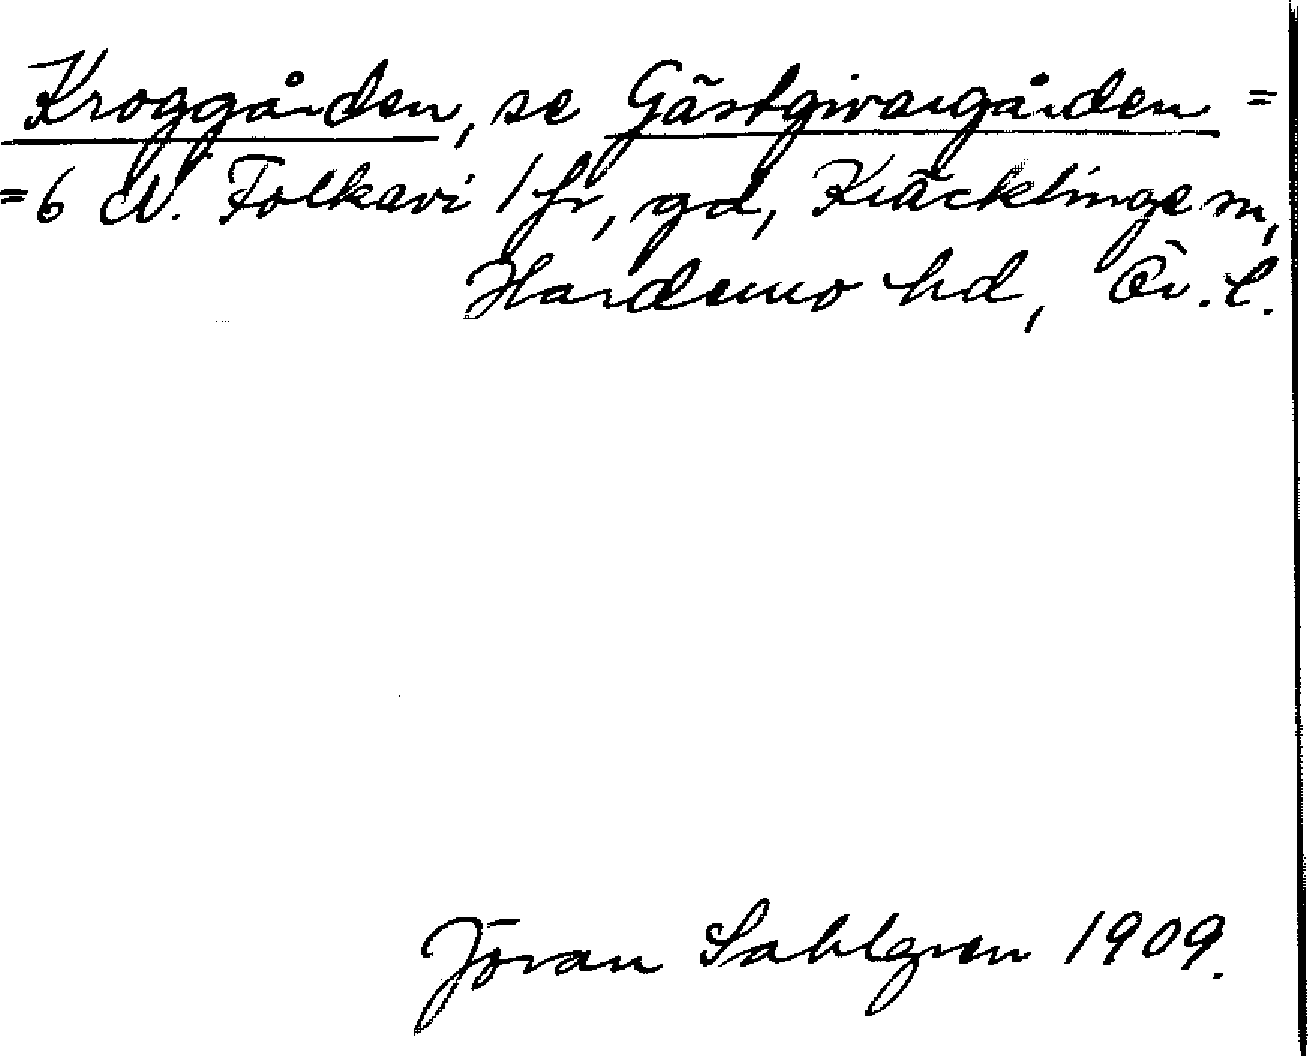 Kroggården, se Gästgivargården =
= 6 N. Folkavi 1 fr, gd, Kräcklinge sn,
Hardemo hd, Ör. l.
Jöran Sahlgren 1909.